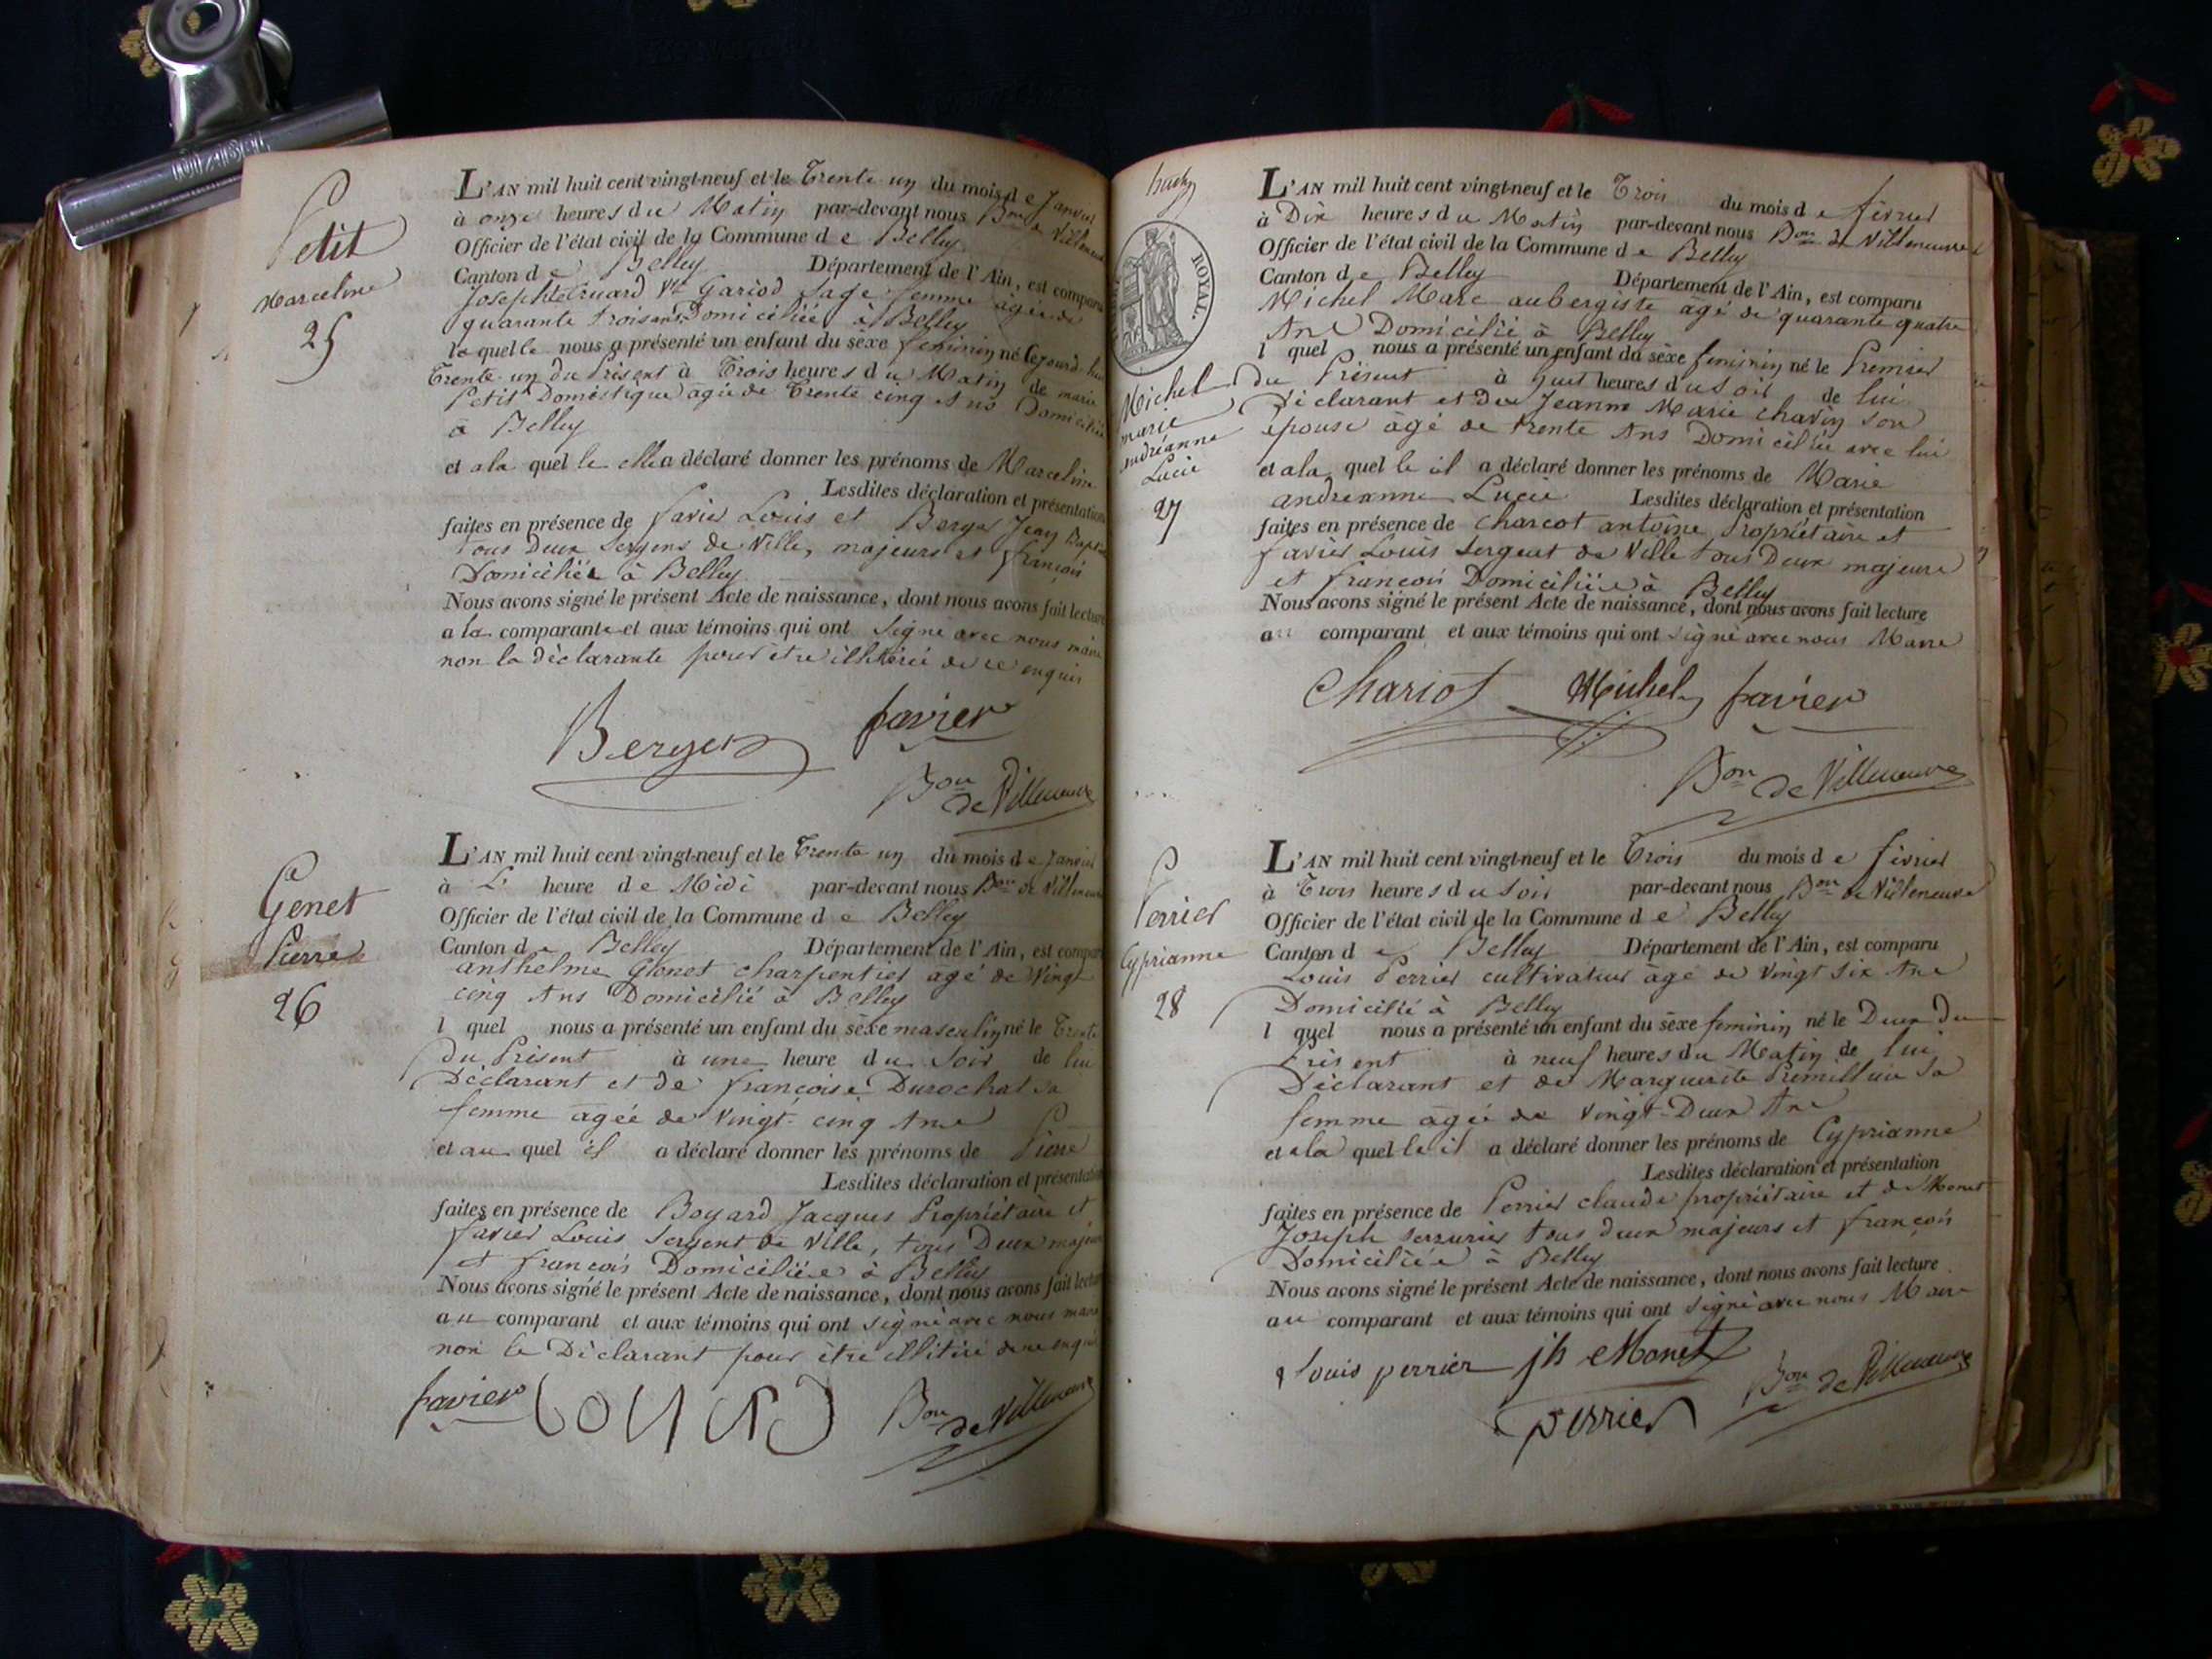 Petit
Marceline
25
L'AN mil huit cent vingt-neuf et le Trente un du mois de Janvier
à onze heures du Matin par-devant nous Bon de Villeneuve
Officier de l'état civil de la Commune de Belley
Canton de Belley Département de l'Ain, est comparu
Joseph Ve Gariod sage femme âgée de
quarante trois ans Domiciliée à Belley
laquelle nous a présenté un enfant du sèxe feminin né Cejourd'hui
Trente un du Présent à Trois heures du Matin de marie
Petit Domestique agée de Trente cinq Ans Domiciliée
à Belley
et a la quelle elle a déclaré donner les prénoms de Marceline
Lesdites déclaration et présentation
faites en présence de favier Louis et Berger Jean Bapt
tous Deux Sergens de Ville, majeurs et françois
Domiciliés à Belley
Nous avons signé le présent Acte de naissance, dont nous avons fait lecture
a la comparante et aux témoins qui ont signé avec nous maire
non la déclarante pour etre illitérée de ce enquis
Berger favier
Bon de Villeneuve
Genet
Pierre
26
L'AN mil huit cent vingt-neuf et le Trente un du mois de Janvier
à L' heure de Midi par-devant nous Bon de Villeneuve
Officier de l'état civil de la Commune de Belley
Canton de Belley Département de l'Ain, est comparu
anthelme Genet charpentier agé de Vingt
cinq Ans Domicilié à Belley
lquel nous a présenté un enfant du sèxe masculin né le Trente
du Présent à une heure du Soir de lui
Déclarant et de françoise Durochat sa
femme âgée de Vingt-cinq Ans
et au quel il a déclaré donner les prénoms de Pierre
Lesdites déclaration et présentation
faites en présence de Boyard Jacques Propriétaire et
favier Louis Sergent de Ville, tous Deux majeurs
et françois Domiciliés à Belley
Nous avons signé le présent Acte de naissance, dont nous avons fait lecture
au comparant et aux témoins qui ont signé avec nous maire
non le Déclarant pour être illitéré de ce enquis
favier Bon de Villeneuve
ROYAL.
Michel
marie
andréanne
Lucie
27
L'AN mil huit cent vingt-neuf et le Trois du mois de février
à Dix heures du Matin par-devant nous Bon de Villeneuve
Officier de l'état civil de la Commune de Belley
Canton de Belley Département de l'Ain, est comparu
Michel Marc aubergiste âgé de quarante quatre
Ans Domicilié à Belley
lquel nous a présenté un enfant du sèxe feminin né le Premier
du Présent à huit heures du Soir de lui
Déclarant et de Jeanne Marie chavin son
épouse âgé de trente Ans Domiciliée avec lui
et a la quelle il a déclaré donner les prénoms de Marie
andréanne Lucie Lesdites déclaration et présentation
faites en présence de charcot antoine Propriétaire et
favier Louis Sergent de Ville tous Deux majeurs
et françois Domiciliés à Belley
Nous avons signé le présent Acte de naissance, dont nous avons fait lecture
au comparant et aux témoins qui ont signé avec nous Maire
Chariot Michel favier
Bon de Villeneuve
Perrier
Cyprianne
28
L'AN mil huit cent vingt-neuf et le Trois du mois de février
à Trois heures du Soir par-devant nous Bon de Villeneuve
Officier de l'état civil de la Commune de Belley
Canton de Belley Département de l'Ain, est comparu
Louis Perrier cultivateur âgé de Vingt six Ans
Domicilié à Belley
lquel nous a présenté un enfant du sèxe feminin né le Deux du
Présent à neuf heures du Matin de lui
Déclarant et de Marguerite sa
femme âgée de Vingt-Deux Ans
et a la quelle il a déclaré donner les prénoms de Cyprianne
Lesdites déclaration et présentation
faites en présence de Perrier claude propriétaire et de Monet
Joseph serrurier tous deux majeurs et françois
Domiciliés à Belley
Nous avons signé le présent Acte de naissance, dont nous avons fait lecture
au comparant et aux témoins qui ont signé avec nous Maire
Louis perrier jh Monet Bon de Villeneuve
perrier